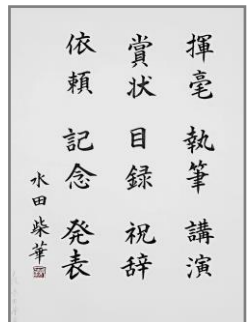 揮毫 執筆 講演
賞状 目録 祝辞
依頼 記念 発表
水田柴華